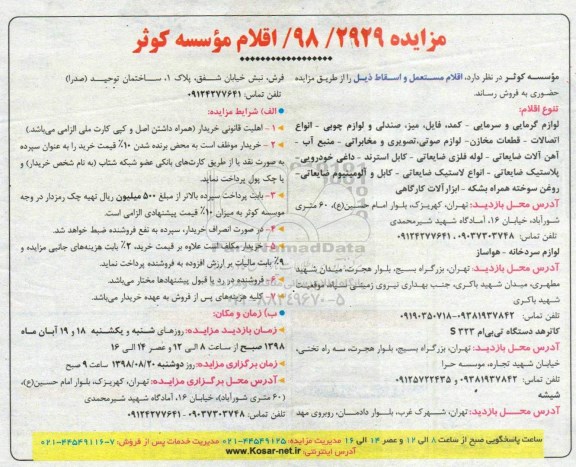 مزایده ۲۹۲۹/ ۹۸/ اقلام مؤسسه کوثر
مؤسسه کوثر در نظر دارد، اقلام مستعمل و اسقاط ذیل را از طریق مزایده
حضوری به فروش رساند.
تنوع اقلام:
لوازم گرمایی و سرمایی - کمد، فایل، میز، صندلی و لوازم چوبی - انواع
اتصالات - قطعات مخازن- لوازم صوتی،تصویری و مخابراتی - منبع آب -
آهن آلات ضایعاتی - لوله فلزی ضایعاتی - کابل استرند - داغی خودرویی-
پلاستیک ضایعاتی - انواع لاستیک ضایعاتی - کابل و آلومینیوم ضایعاتی-
روغن سوخته همراه بشکه - ابزارآلات کارگاهی
آدرس محل بازدید: تهران، کهریزک، بلوار امام حسین(ع)، ۶۰ متری
شورآباد، خیابان ۱۶، آمادگاه شهید شیرمحمدی
تلفن تماس: ۰۹۰۳۷۳۰۳۷۴۸ ، ۰۹۱۲۴۲۷۷۶۴۱
لوازم سردخانه - هواساز
آدرس محل بازدید: تهران، بزرگراه بسیج، بلوار هجرت، میدان شهید
مطهری، میدان شهید باکری، جنب بهداری نیروی زمینی سپاه، موقعیت
شهید باکری
تلفن تماس: ۰۹۳۸۱۹۳۷۸۴۲ - ۰۹۱۹۰۳۵۰۷۱۸
کاترهد دستگاه تی‌بی‌ام S ۳۲۳
آدرس محل بازدید: تهران، بزرگراه بسیج، بلوار هجرت، سه راه تختی،
خیابان شهید تجاره، موسسه حرا
تلفن تماس: ۰۹۳۸۱۹۳۷۸۴۲ و ۰۹۱۲۵۷۲۲۴۳۵
شیشه
آدرس محل بازدید: تهران، شهرک غرب، بلوار دادمان، روبروی مهد
فرش، نبش خیابان شفق، پلاک ۱، ساختمان توحید (صدرا)
تلفن تماس: ۰۹۱۲۴۲۷۷۶۴۱
الف) شرایط مزایده:
۱- اهلیت قانونی خریدار (همراه داشتن اصل و کپی کارت ملی الزامی می‌باشد.)
۲- خریدار موظف است به محض برنده شدن ۱۰٪ قیمت خرید را به عنوان سپرده
به صورت نقد یا از طریق کارت‌های بانکی عضو شبکه شتاب (به نام شخص خریدار) و
یا چک پول پرداخت نماید.
۳- بابت پرداخت سپرده بالاتر از مبلغ ۵۰۰ میلیون ریال تهیه چک رمزدار در وجه
موسسه کوثر به میزان ۱۰٪ قیمت پیشنهادی الزامی است.
۴- در صورت انصراف خریدار، سپرده به نفع فروشنده ضبط خواهد شد.
۵- خریدار مکلف است علاوه بر قیمت خرید، ۲٪ بابت هزینه‌های جانبی مزایده و
۹٪ بابت مالیات بر ارزش افزوده به فروشنده پرداخت نماید.
۶- فروشنده در رد یا قبول پیشنهادها مختار می‌باشد.
۷- کلیه هزینه‌های پس از فروش به عهده خریدار می‌باشد.
ب) زمان و مکان:
زمان بازدید مزایده: روزهای شنبه و یکشنبه ۱۸ و ۱۹ آبان ماه
۱۳۹۸ صبح از ساعت ۸ الی ۱۲ و عصر ۱۴ الی ۱۶
زمان برگزاری مزایده: روز دوشنبه ۱۳۹۸/۰۸/۲۰ ساعت ۹ صبح
آدرس محل برگزاری مزایده: تهران، کهریزک، بلوار امام حسین(ع)،
(۶۰ متری شورآباد)، خیابان ۱۶، آمادگاه شهید شیرمحمدی
تلفن تماس: ۰۹۰۳۷۳۰۳۷۴۸ - ۰۹۱۲۴۲۷۷۶۴۱
ساعت پاسخگویی صبح از ساعت ۸ الی ۱۲ و عصر ۱۴ الی ۱۶ مدیریت مزایده: ۴۴۵۴۹۱۲۵-۰۲۱ مدیریت خدمات پس از فروش: ۷-۴۴۵۴۹۱۱۶-۰۲۱
آدرس اینترنتی: www.Kosar-net.ir